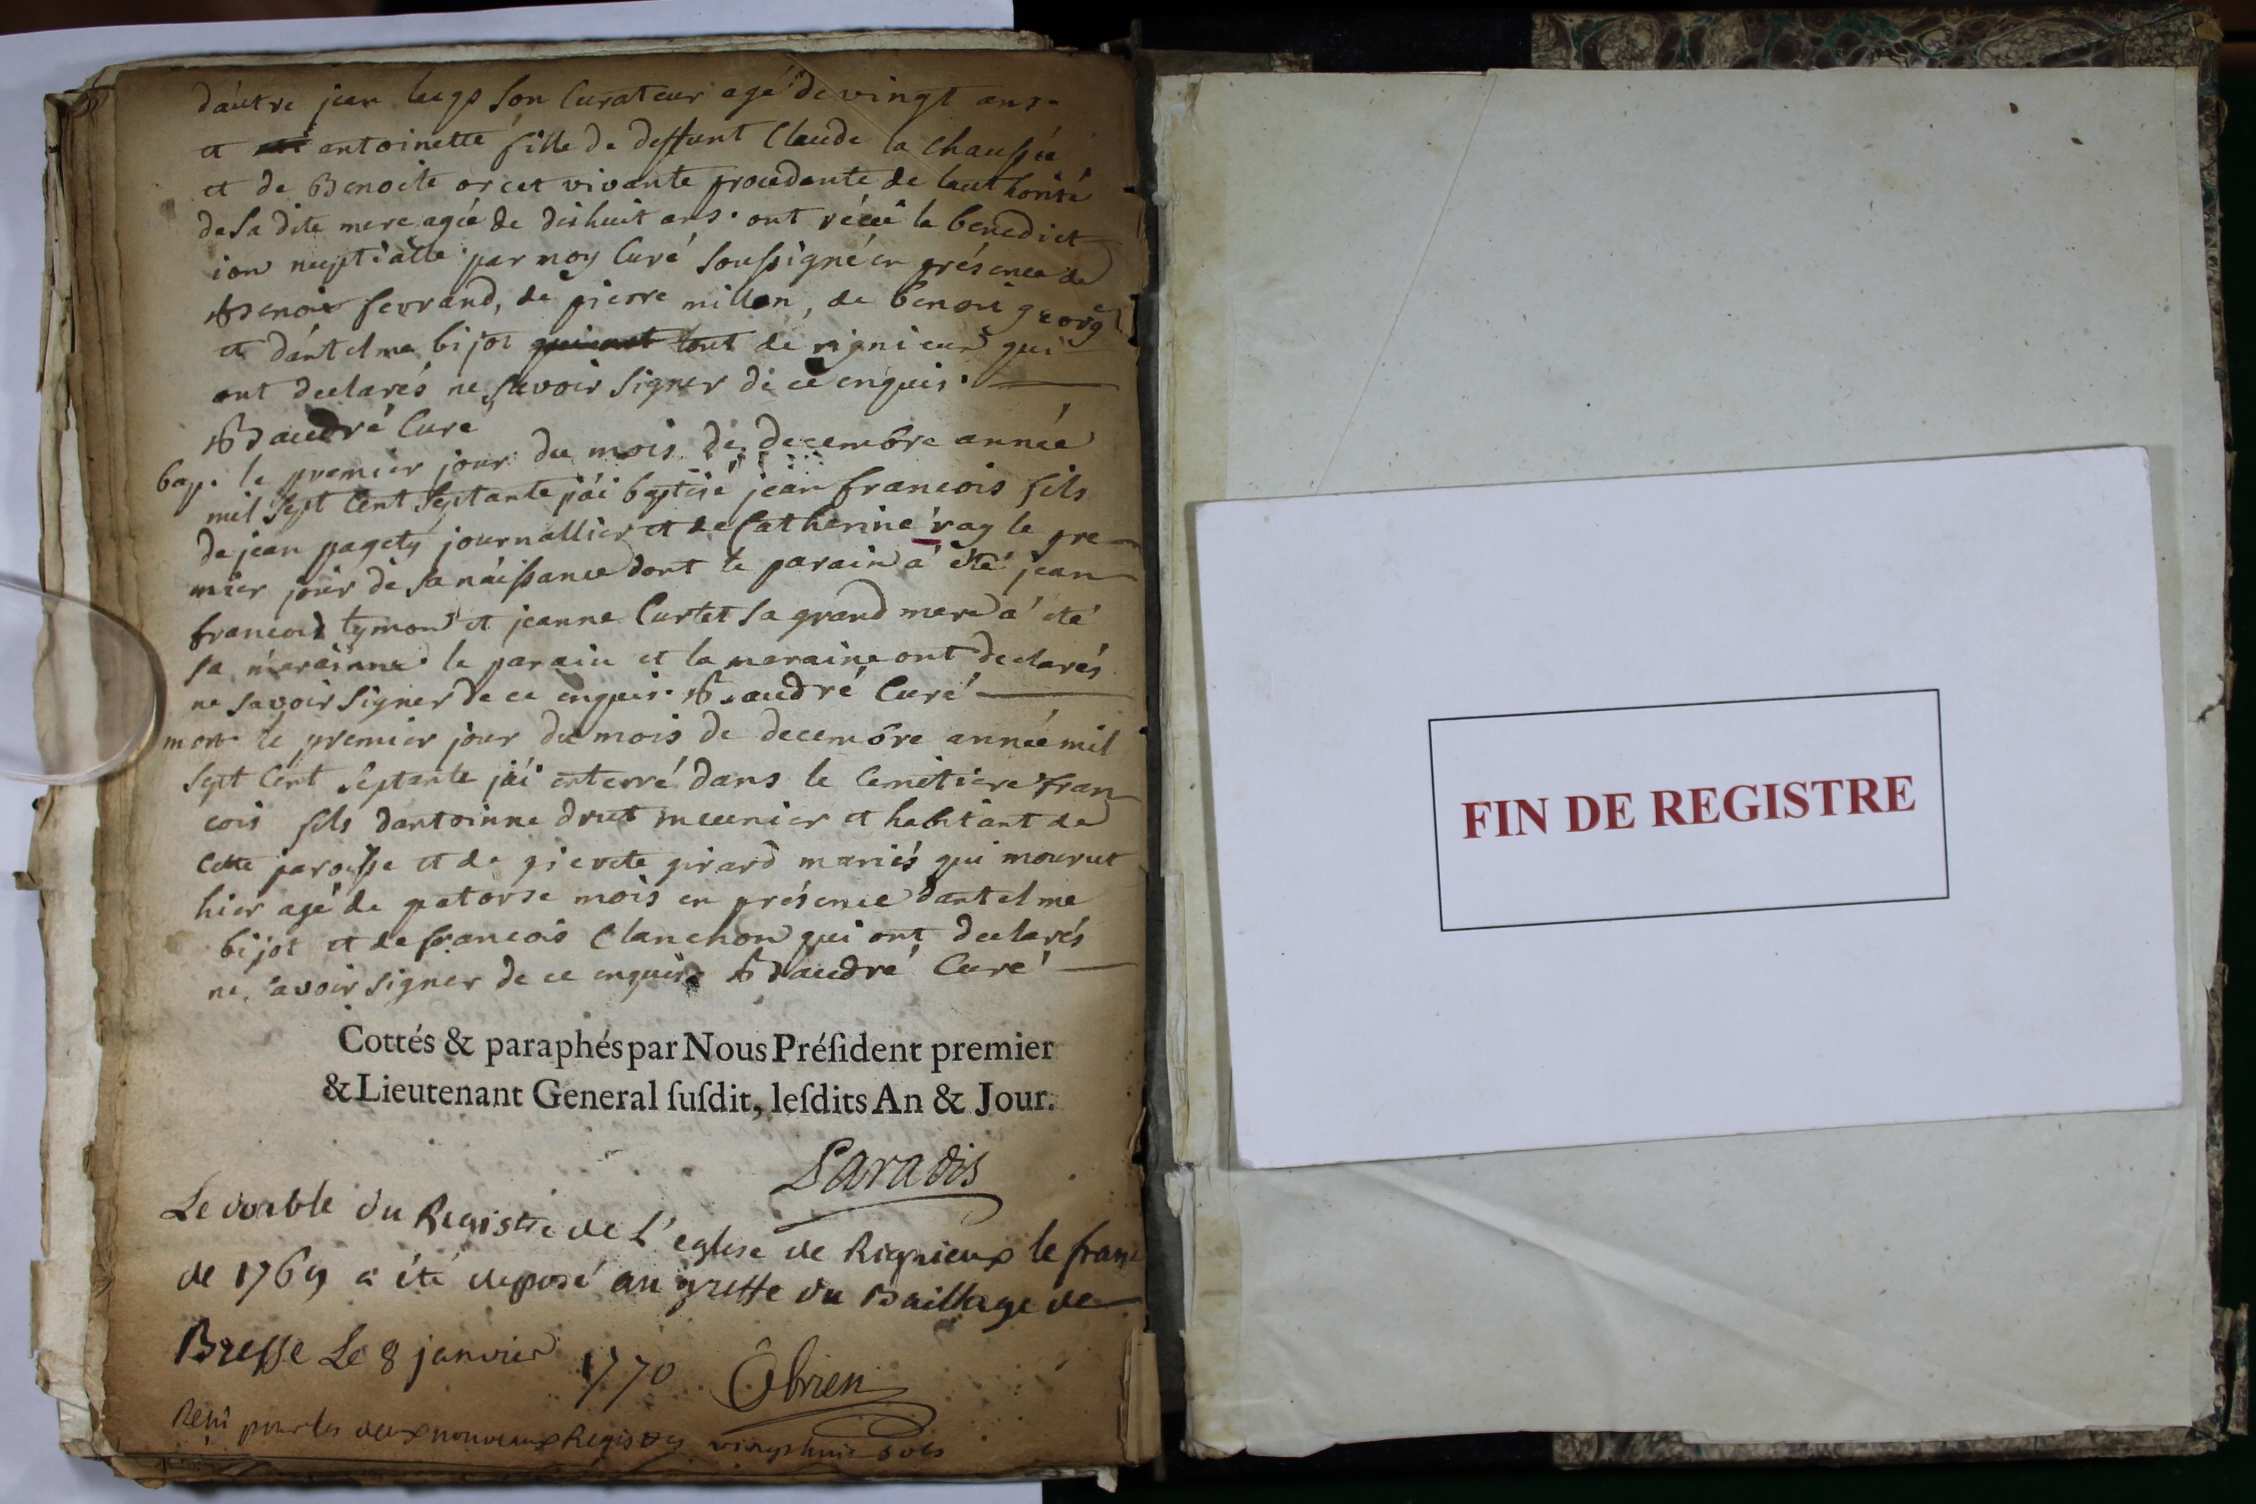 dautre jean son Curateur agé de vingt ans
et antoinette fille de deffunt Claude la chaussée
et de Benoite orcet vivante procedente de lauthorité
de sa dite mere agée de dishuit ans. ont récüe la benedict
ion nuptialle par moy Curé soussigné en présence de
Benoit ferrand, de pierre millon, de benoi george
et dántelme bijot tout de rignieux qui
ont declarés ne savoir signer de ce enquis.
Baudré Curé
bap. le premier jour du mois de decembre année
mil sept Cent septante jái baptisé jean francois fils
de jean pagety journallier et de Catherine ray le pre
mier jour de sa náissance dont le parain a été jean
francois tymon et jeanne Curtet sa grand mere a été
sa marainne. le parain et la maraine ont declarés
ne savoir signer de ce enquis. Baudré Curé
mort le premier jour du mois de decembre année mil
sept Cent septante jái enterré dans le Cemetiere fran
cois fils dantoinne drut meunier et habitant de
Cette paroisse et de pierrete girard mariés qui mourut
hier agé de quatorse mois en présence dantelme
bijot et de francois Clanchon qui ont declarés
ne savoir signer de ce enquis Baudré Curé
Cottés & paraphés par Nous Préſident premier
& Lieutenant General ſuſdit, leſdits An & Jour.
Paradis
Le double du Registre de L'eglise de Rignieux le franc
de 1769 a été deposé au greffe du Baillage de
Bresse Le 8 janvier 1770 Obrien
Recu pour les deux nouveaux Registres vingt huit sols
FIN DE REGISTRE